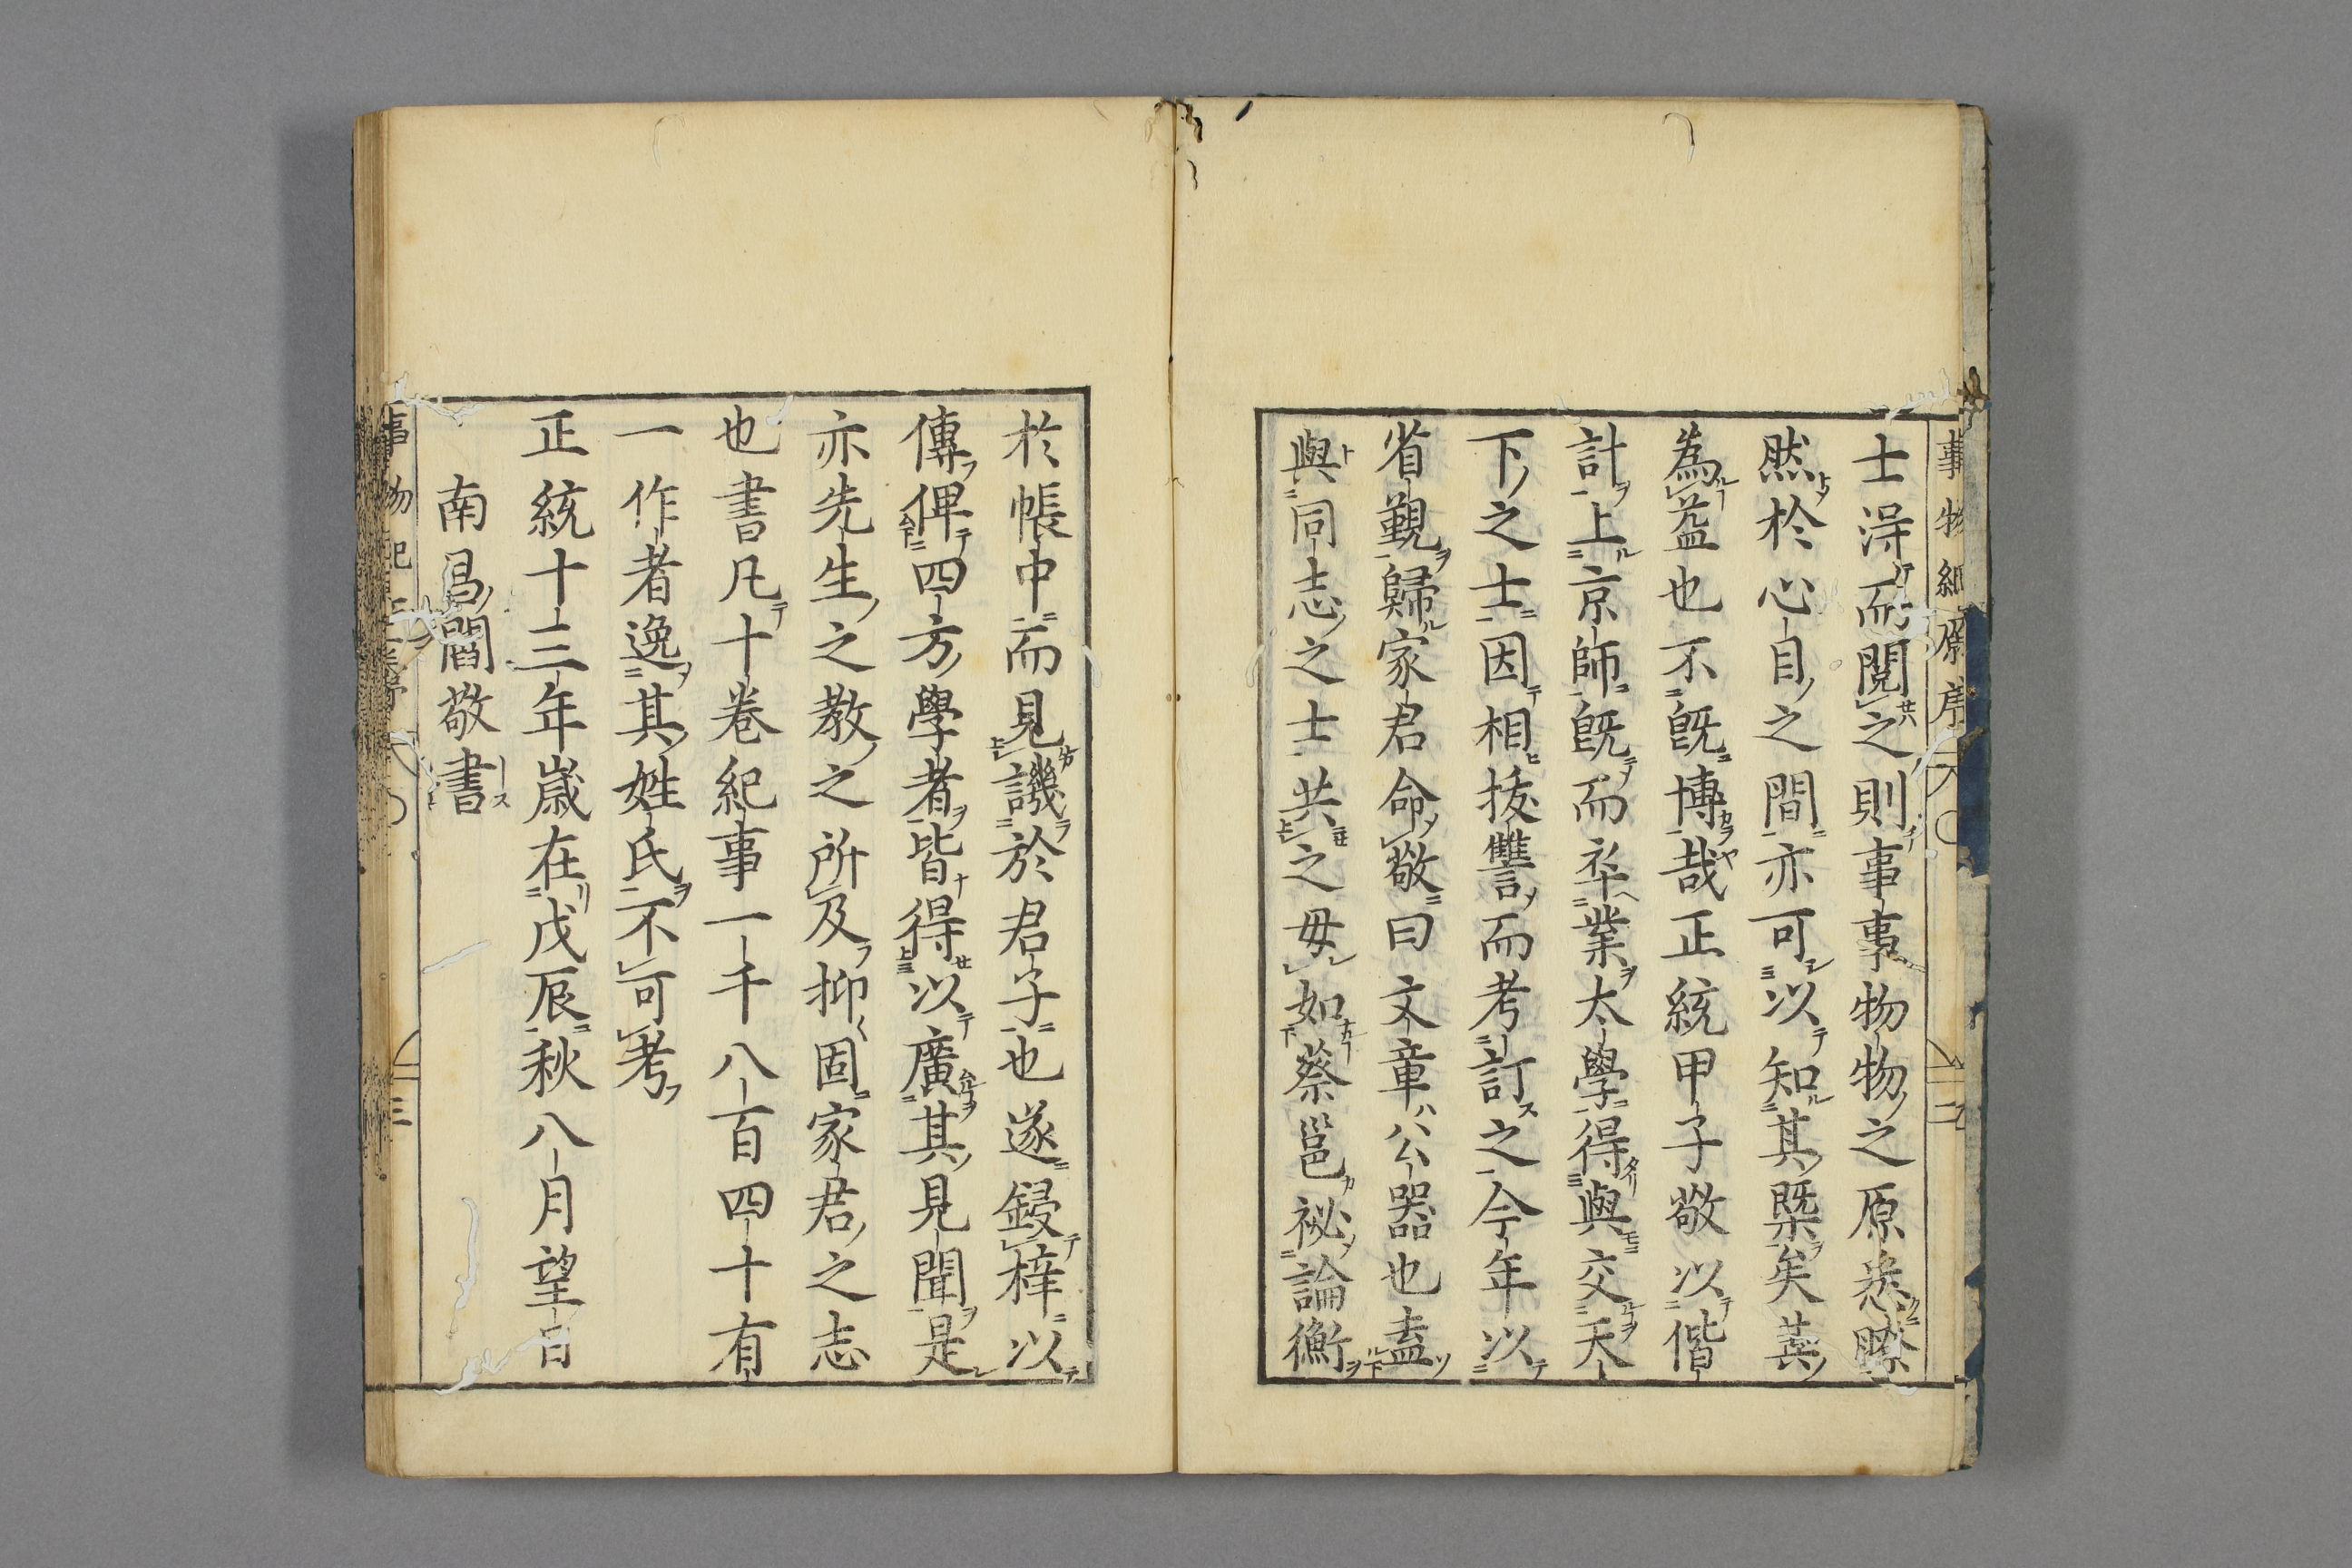 事物紀原序
士淂而閱之則事事物物之原悉瞭
然於心目之間亦可以知其槩矣其
為益也不旣博哉正統甲子敬以偕
計上京師旣而卒業太學得與交天
下之士因相扳讐而考訂之今年以
省覲歸家君命敬曰文章公器也盍
與同志之士共之毋如蔡邕祕論衡
於帳中而見譏於君子也遂鋟梓以
傳俾四方學者皆得以廣其見聞是
亦先生之敎之所及抑固家君之志
也書凡十卷紀事一千八百四十有
一作者逸其姓氏不可考
正統十三年歲在戊辰秋八月望日
南昌閻敬書
事物紀原序 三